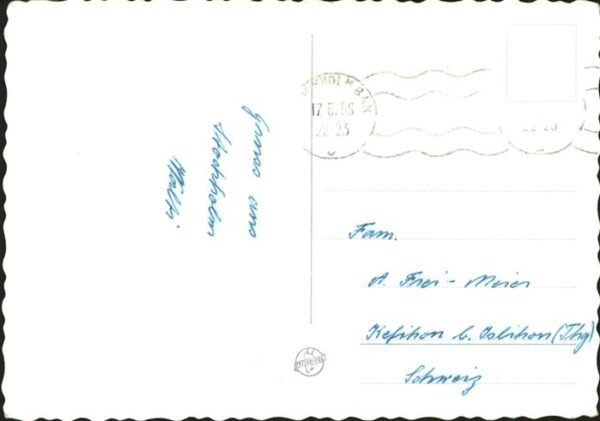 Gruss aus
Stockholm
Willi
17.6.58
22-23
Fam.
A. Frei-Meier
Kefikon b. Islikon (Thg)
Schweiz